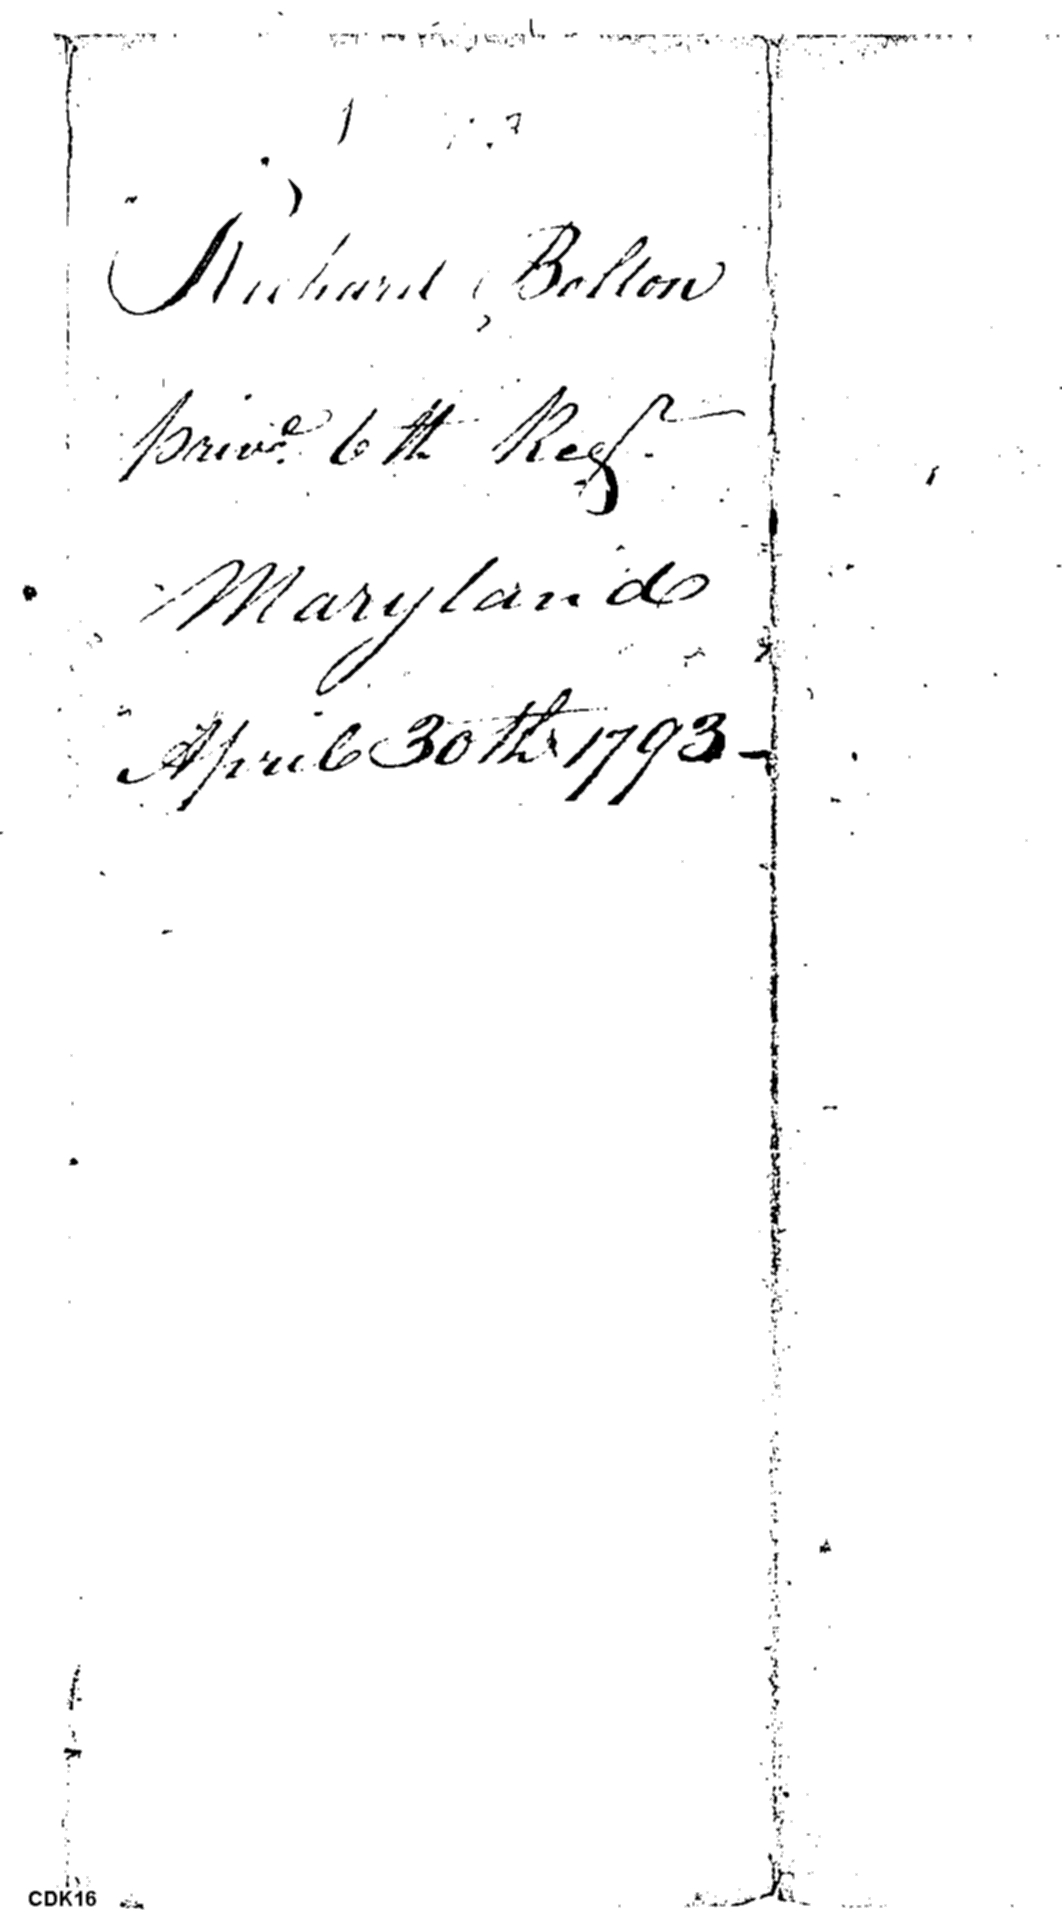 Richard Bolton
priv.e 6th Reg.t
Maryland
April 30th 1793 -
CDK16